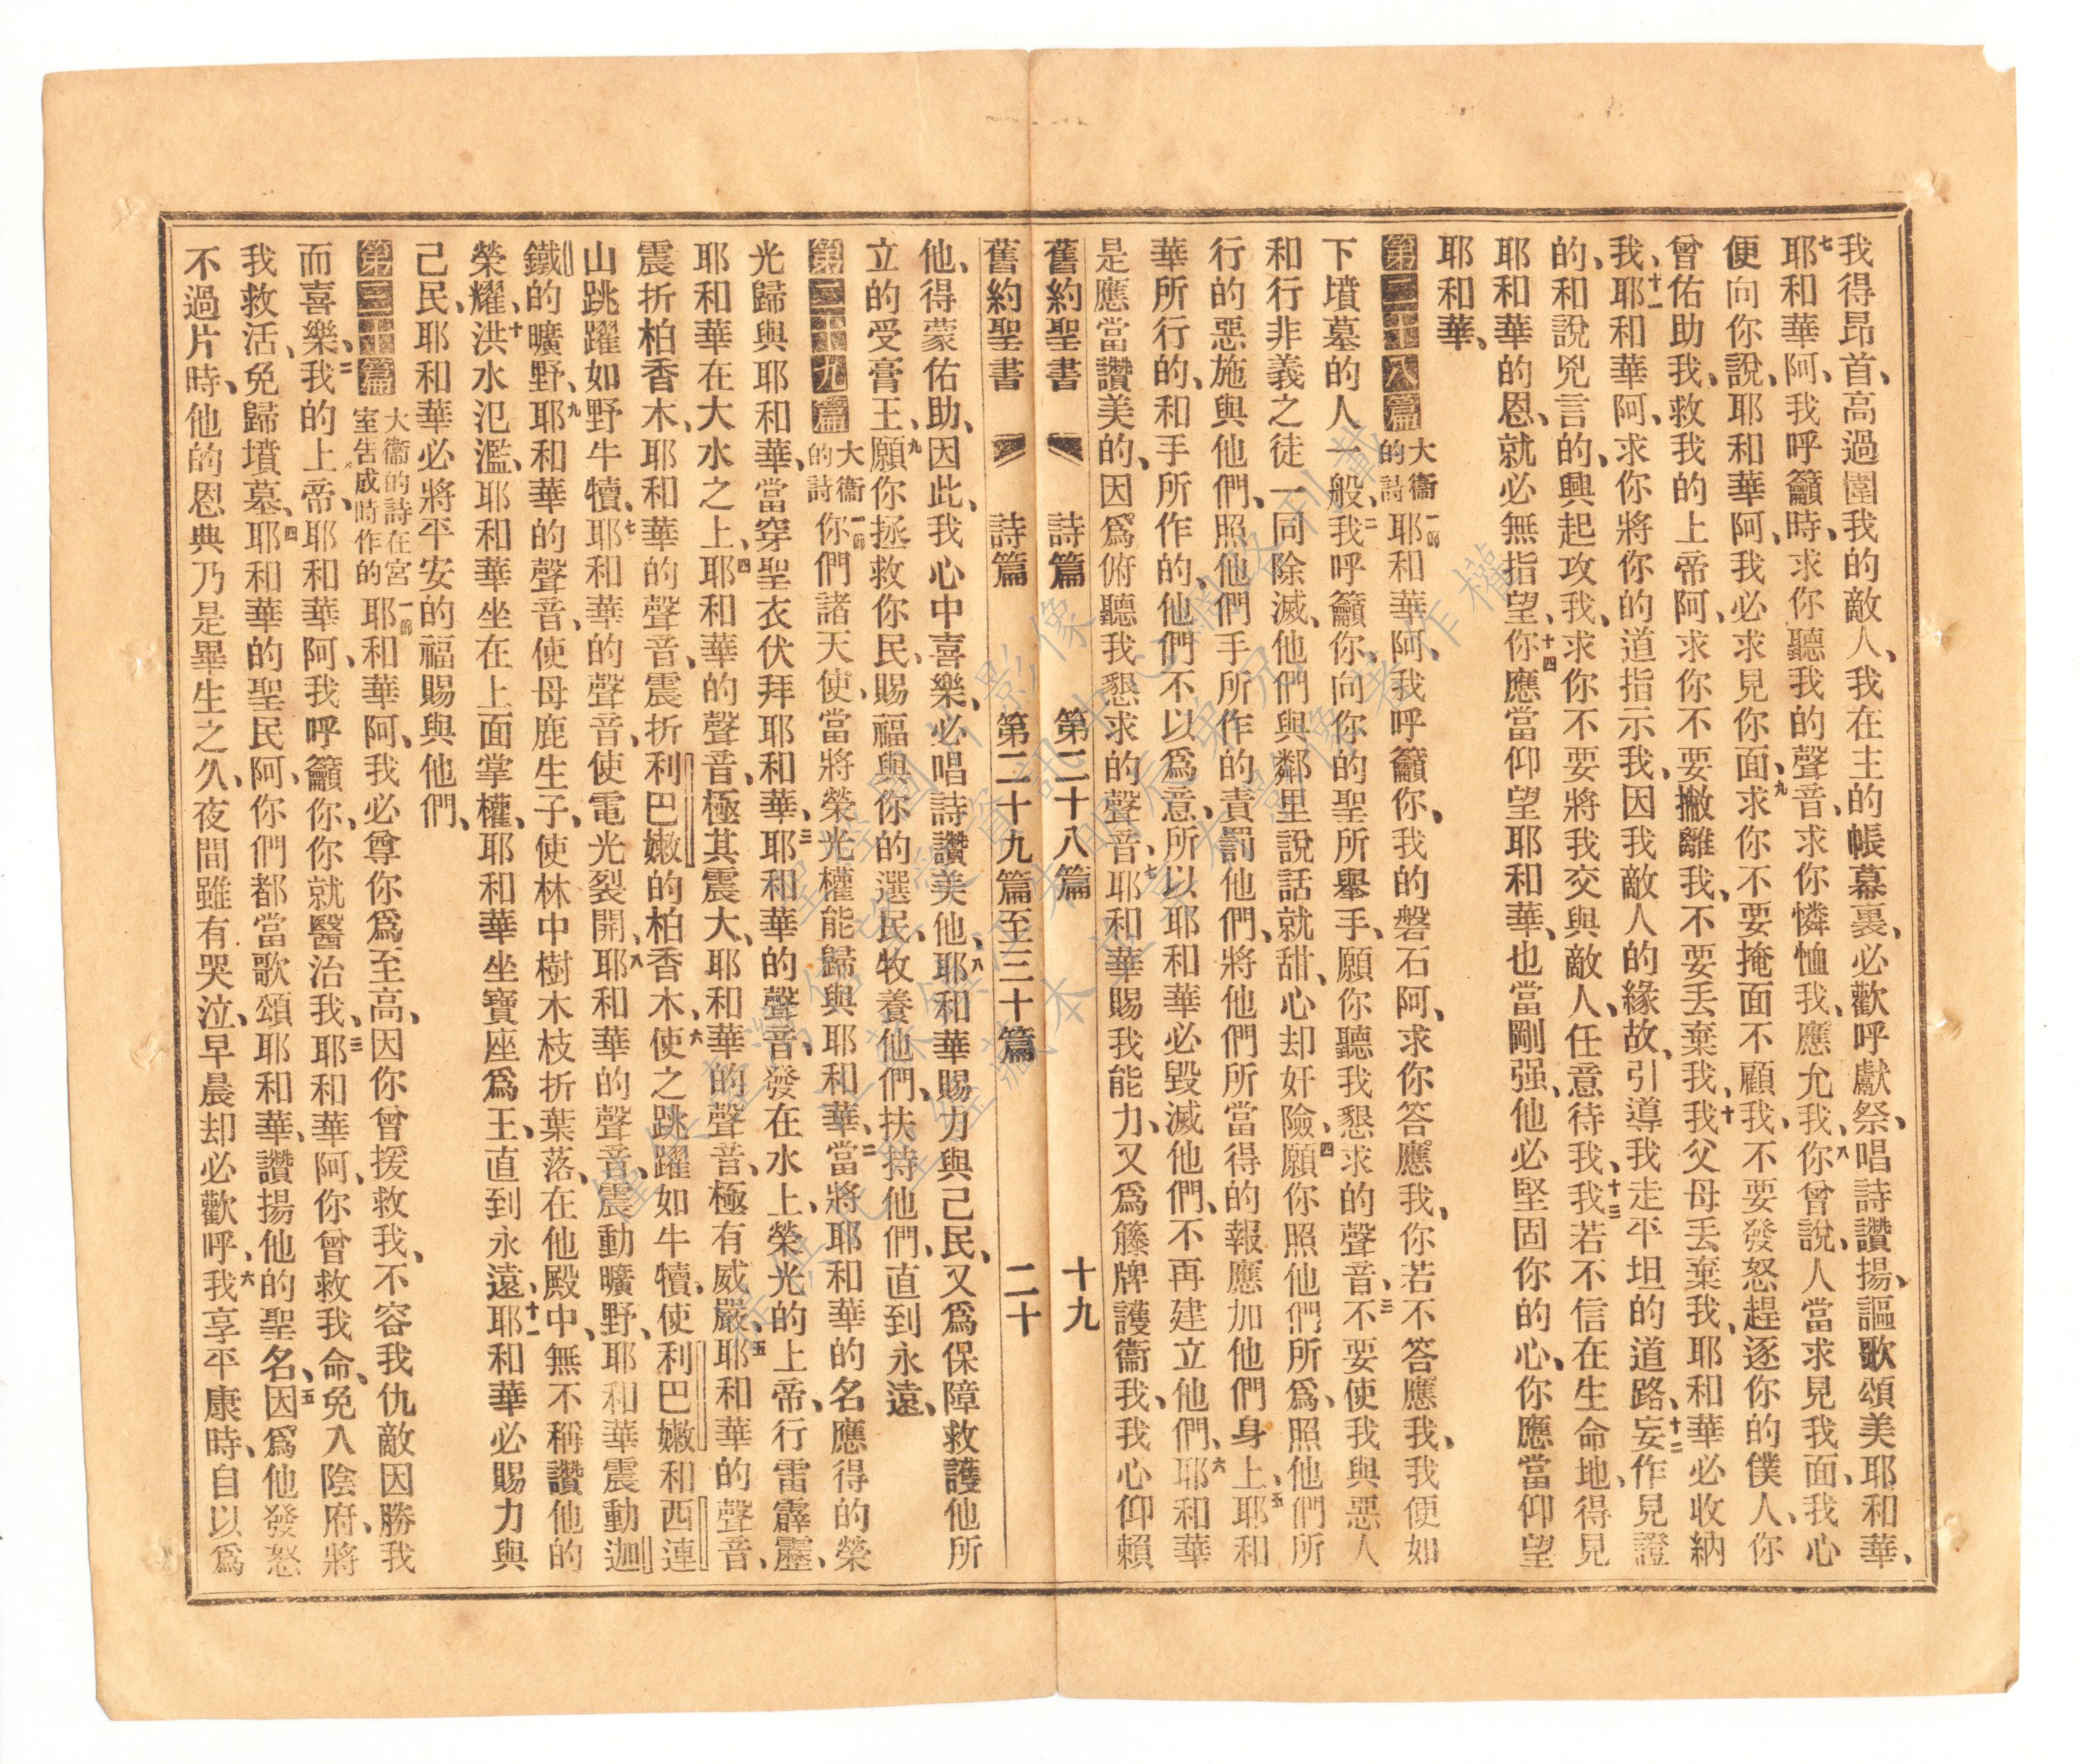 我得昂首、高過圍我的敵人、我在主的帳幕裏、必歡呼獻祭、唱詩讚揚、謳歌頌美耶和華、
七耶和華阿、我呼籲時、求你聽我的聲音、求你憐恤我、應允我、八你曾說、人當求見我面、我心
便向你說、耶和華阿、我必求見你面、九求你不要掩面不顧我、不要發怒趕逐你的僕人、你
曾佑助我、救我的上帝阿、求你不要撇離我、不要丟棄我、十我父母丟棄我、耶和華必收納
我、十一耶和華阿、求你將你的道指示我、因我敵人的緣故、引導我走平坦的道路、十二妄作見證
的、和說兇言的、興起攻我、求你不要將我交與敵人、任意待我、十三我若不信在生命地、得見
耶和華的恩、就必無指望、十四你應當仰望耶和華、也當剛强、他必堅固你的心、你應當仰望
耶和華、
第二十八篇 大衞的詩 一節耶和華阿、我呼籲你、我的磐石阿、求你答應我、你若不答應我、我便如
下墳墓的人一般、二我呼籲你、向你的聖所舉手、願你聽我懇求的聲音、三不要使我與惡人
和行非義之徒一同除滅、他們與鄰里說話就甜、心却奸險、四願你照他們所爲、照他們所
行的惡施與他們、照他們手所作的責罰他們、將他們所當得的報應加他們身上、五耶和
華所行的、和手所作的、他們不以爲意、所以耶和華必毀滅他們、不再建立他們、六耶和華
是應當讚美的、因爲俯聽我懇求的聲音、七耶和華賜我能力、又爲籐牌護衞我、我心仰賴
舊約聖書 詩篇 第二十八篇 十九
舊約聖書 詩篇 第二十九篇至三十篇 二十
他、得蒙佑助、因此、我心中喜樂、必唱詩讚美他、八耶和華賜力與己民、又爲保障救護他所
立的受膏王、九願你拯救你民、賜福與你的選民、牧養他們、扶持他們、直到永遠、
第二十九篇 大衞的詩 一節你們諸天使、當將榮光權能歸與耶和華、二當將耶和華的名應得的榮
光歸與耶和華、當穿聖衣伏拜耶和華、三耶和華的聲音、發在水上、榮光的上帝、行雷霹靂、
耶和華在大水之上、四耶和華的聲音、極其震大、耶和華的聲音、極有威嚴、五耶和華的聲音、
震折柏香木、耶和華的聲音、震折利巴嫩的柏香木、六使之跳躍如牛犢、使利巴嫩和西連
山跳躍如野牛犢、七耶和華的聲音、使電光裂開、八耶和華的聲音、震動曠野、耶和華震動迦
鐵的曠野、九耶和華的聲音、使母鹿生子、使林中樹木枝折葉落、在他殿中、無不稱讚他的
榮耀、十洪水氾濫、耶和華坐在上面掌權、耶和華坐寶座爲王、直到永遠、十一耶和華必賜力與
己民、耶和華必將平安的福賜與他們、
第三十篇 大衞的詩在宮室告成時作的 一節耶和華阿、我必尊你爲至高、因你曾援救我、不容我仇敵因勝我
而喜樂、二我的上帝、耶和華阿、我呼籲你、你就醫治我、三耶和華阿、你曾救我命、免入陰府、將
我救活、免歸墳墓、四耶和華的聖民阿、你們都當歌頌耶和華、讚揚他的聖名、五因爲他發怒
不過片時、他的恩典乃是畢生之久、夜間雖有哭泣、早晨却必歡呼、六我享平康時、自以爲